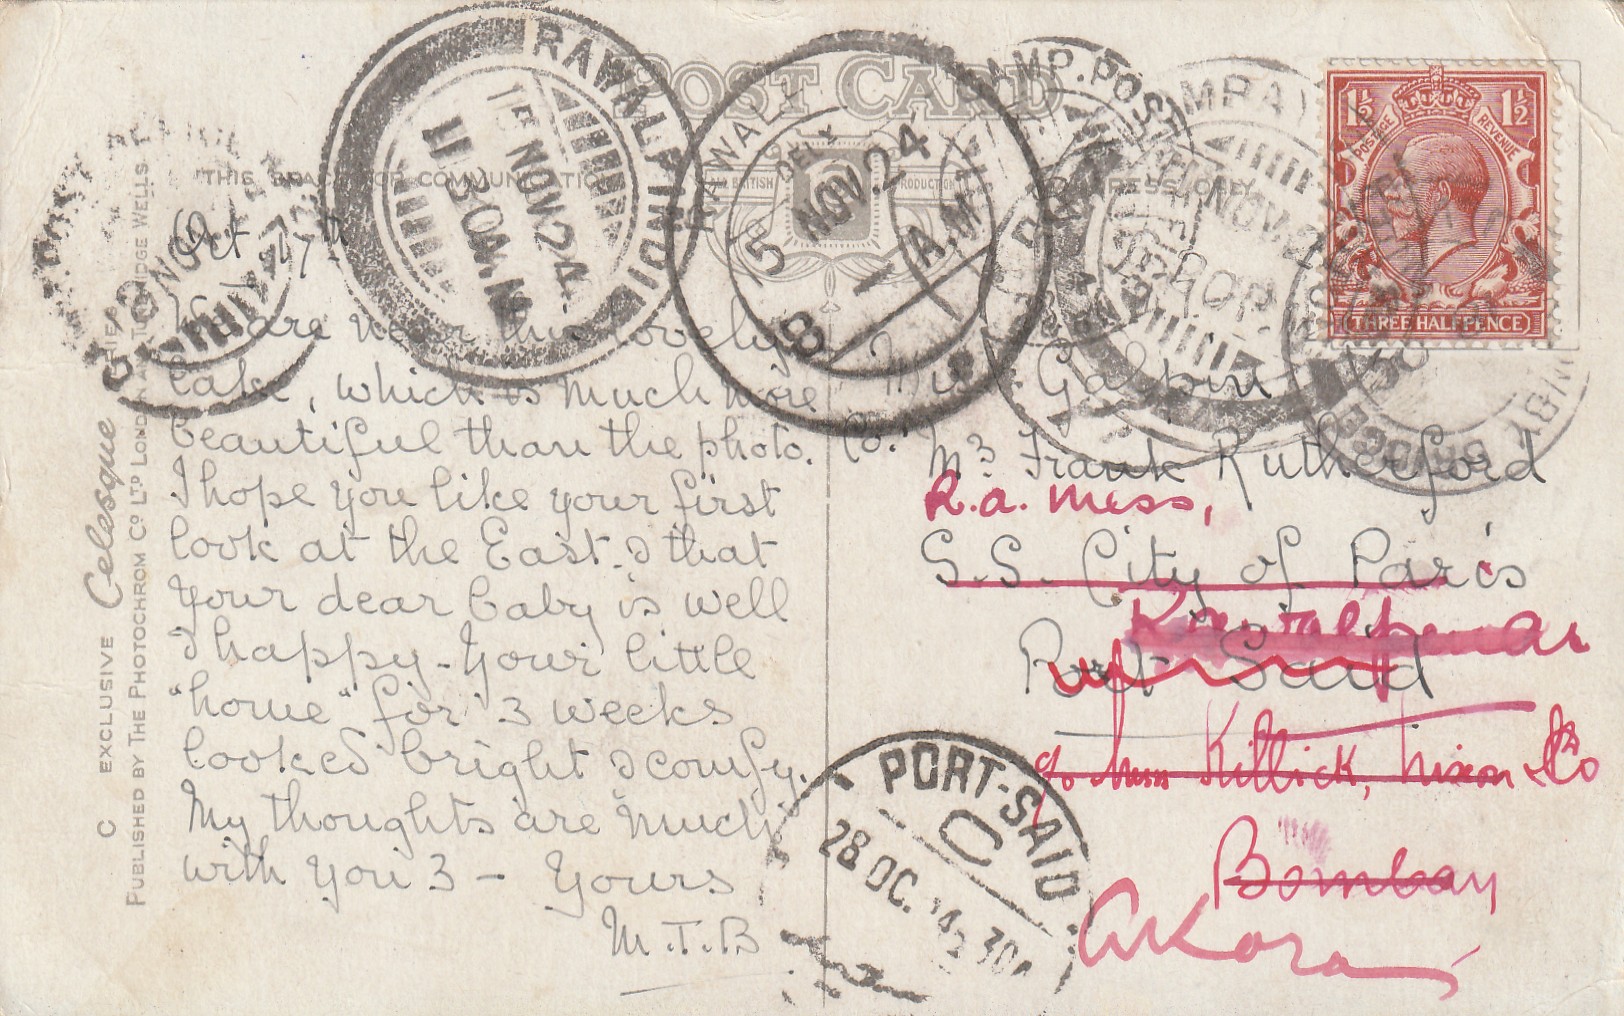 POST CARD
THIS SPACE FOR COMMUNICATION
BRITISH PRODUCTION
ADDRESS ONLY
RAWALPINDI
15 NOV. 24
11.30 A.M.
RAWALPI
DEL
15 NOV. 24
8 A.M.
CAMP. POST
NOV. 2
1½ 1½
POSTAGE REVENUE
THREE HALFPENCE
Oct 17th
We are near this lovely
lake, which is much more
beautiful than the photo.
I hope you like your first
look at the East & that
your dear baby is well
& happy - Your little
"home" for 3 weeks
looked bright & comfy.
My thoughts are much
with you 3 - Yours
M.T.B
Miss Galpin
Co. Mrs Frank Rutherford
R.A. Mess,
S.S. City of Paris
Port Said
c/o Messrs Killick, Nixon & Co
Bombay
Akora
PORT-SAID
C
28 OC. 24 30
C EXCLUSIVE Celesque
PUBLISHED BY THE PHOTOCHROM CO LTD LONDON AND TUNBRIDGE WELLS